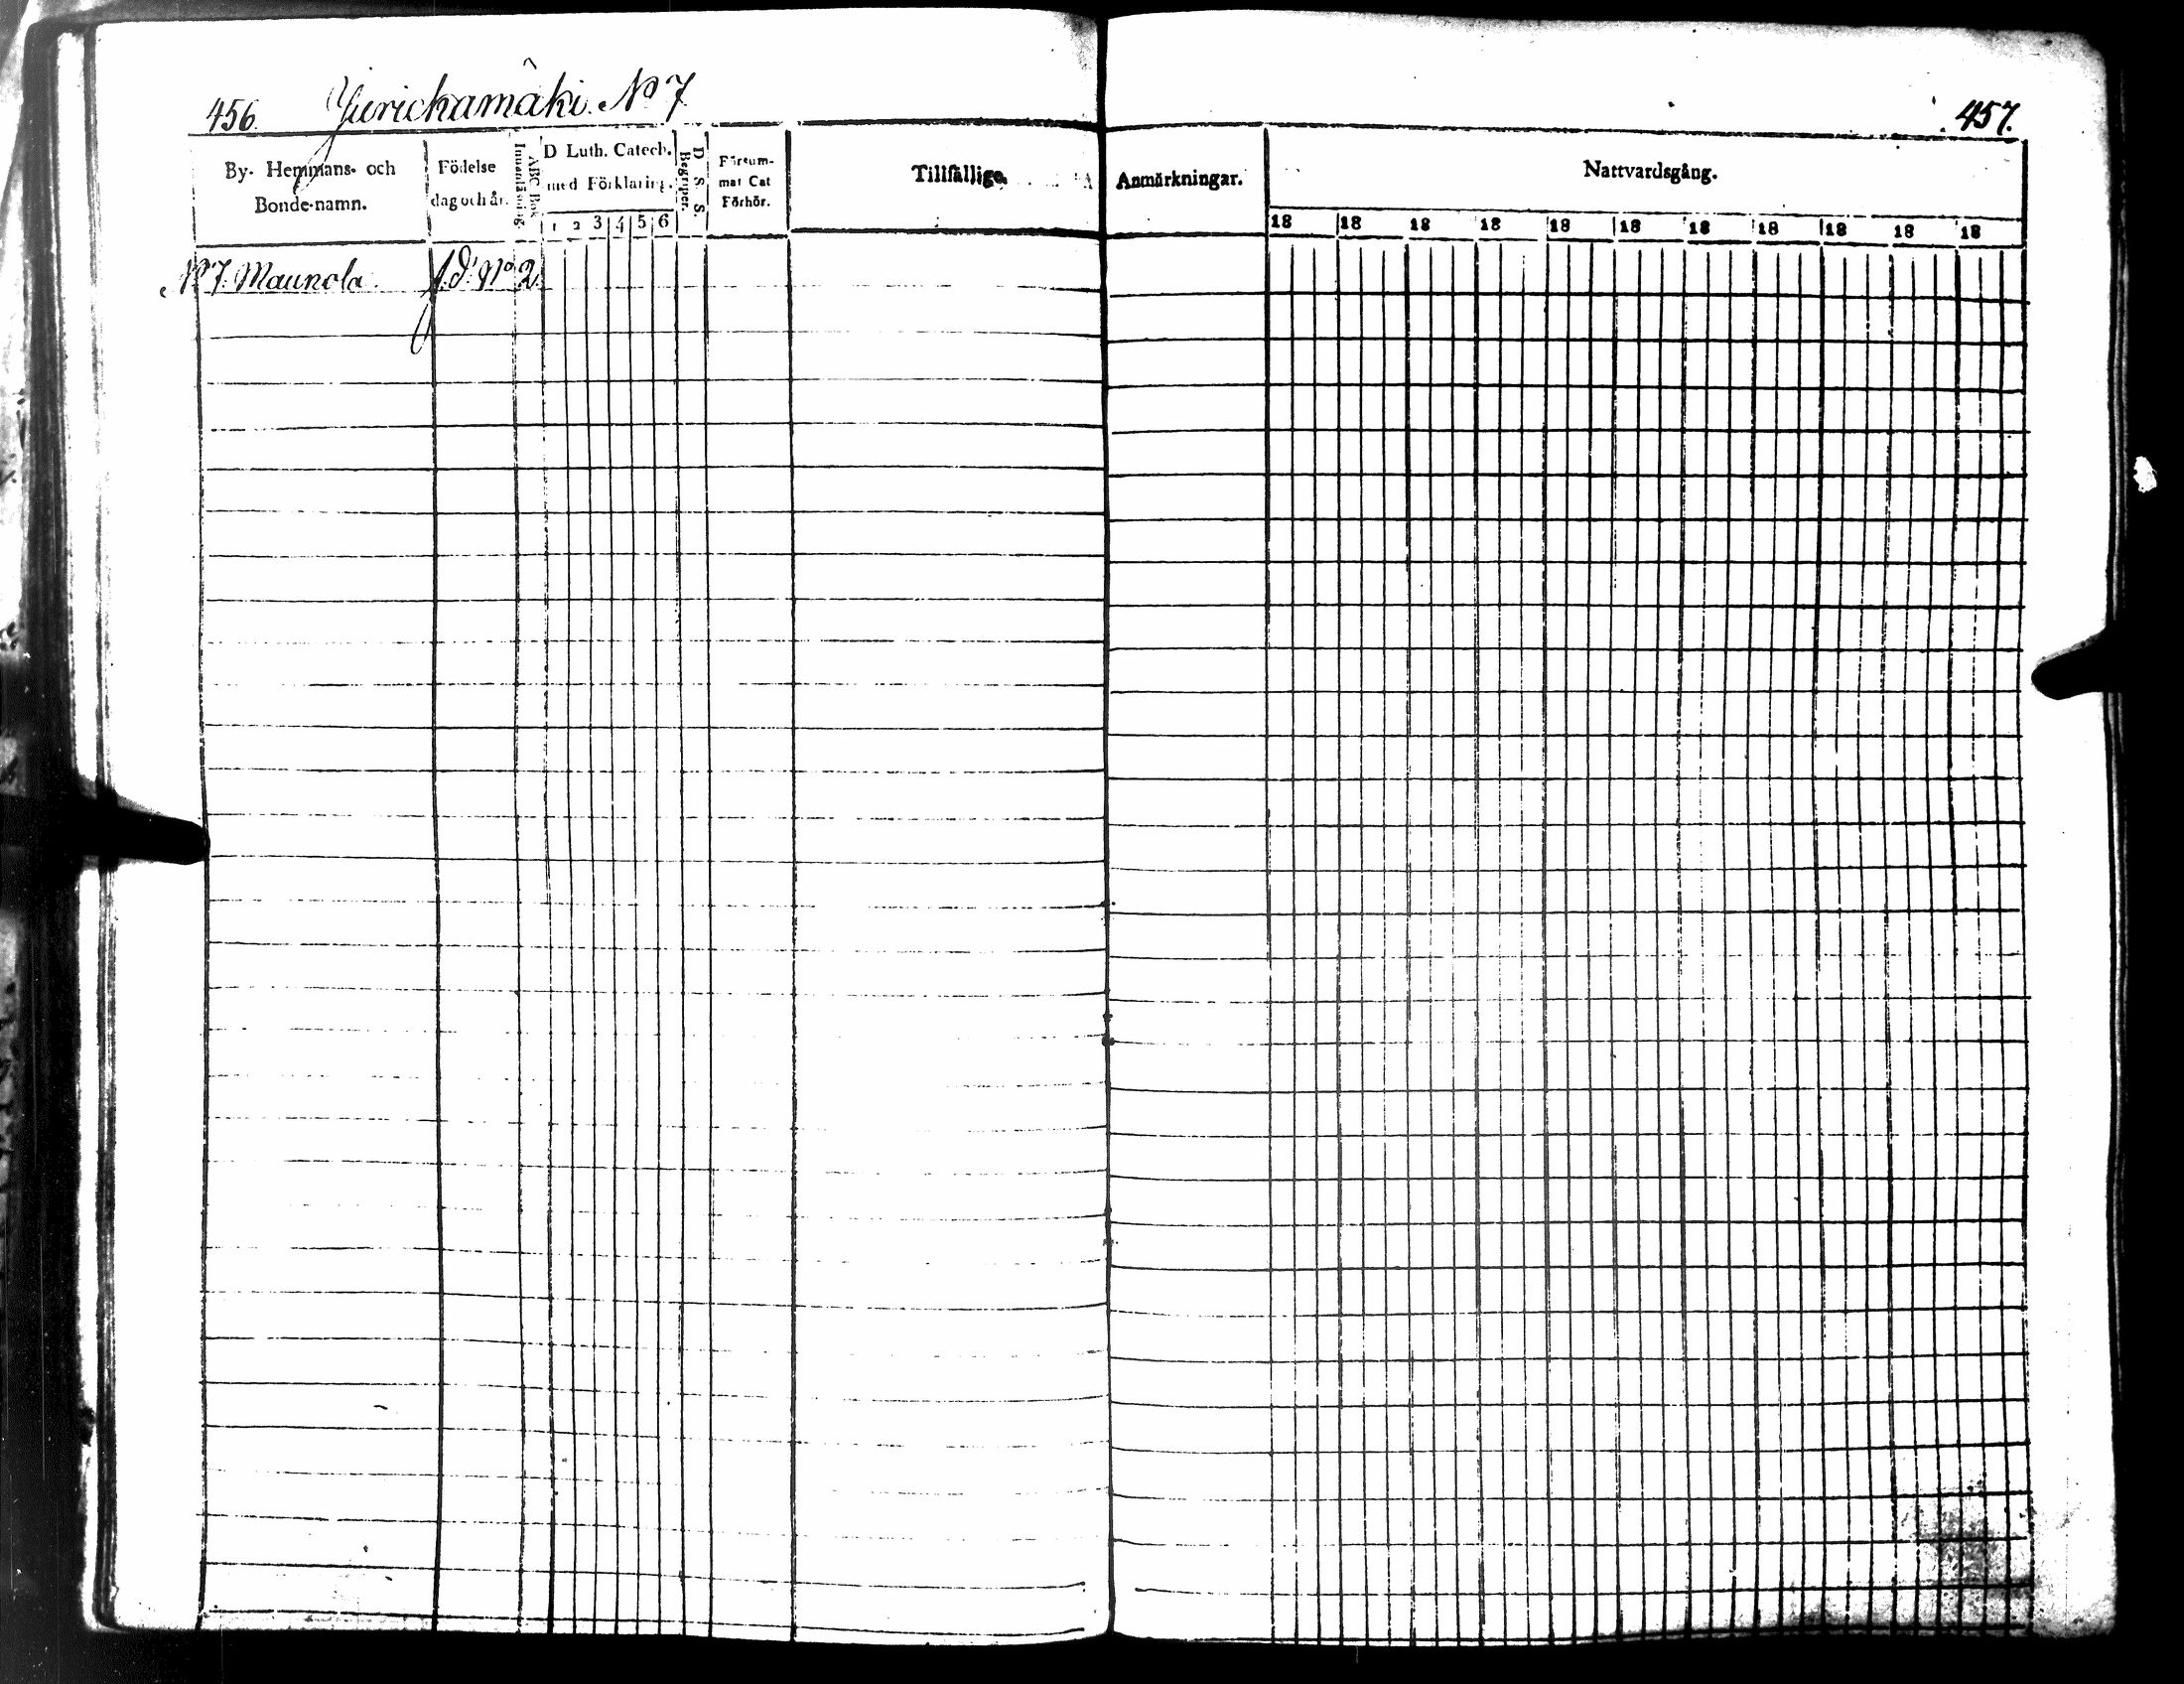 456. Yurickamäki. No 7.
457.
By- Hemmans- och Bonde-namn.
Födelse dag och år.
Innanläsning.
ABC Bok
D Luth. Catech. med Förklaring.
1 2 3 4 5 6
Begriper.
D. S. S.
Försum- mat Cat Förhör.
Tillfällige
Anmärkningar.
Nattvardsgång.
18 18 18 18 18 18 18 18 18 18 18
No 7. Maunola. No 2